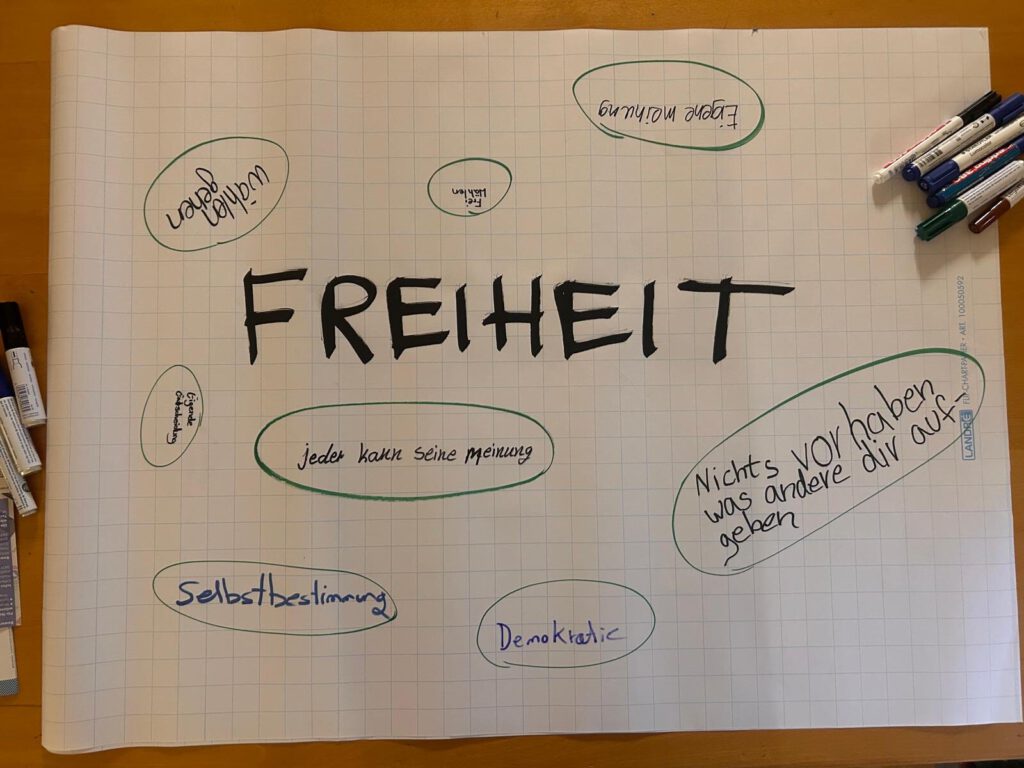 Eigene meinung
wählen
gehen
Frei
Wählen
FREIHEIT
LANDRÉ
FLIPCHARTPAPIER • ART. 100050592
Eigende
Entscheidung
jeder kann seine meinung
Nichts vorhaben
was andere dir auf
geben
Selbstbestimmung
Demokratie